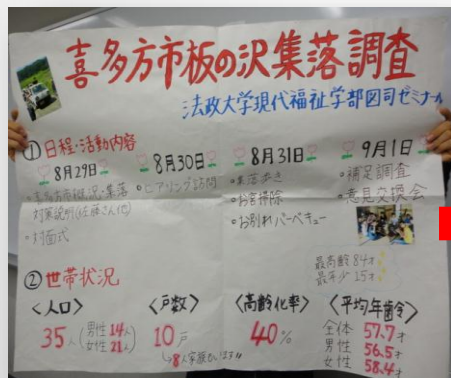 喜多方市板の沢集落調査
法政大学現代福祉学部図司ゼミナール
①日程・活動内容
8月29日
・喜多方市概況・集落
対策説明(佐藤さん他)
・対面式
8月30日
・ヒアリング訪問
8月31日
・集落歩き
・お宮掃除
・お別れバーベキュー
9月1日
・補足調査
・意見交換会
②世帯状況
最高齢84才
最年少15才
<人口>
35人(男性14人
女性21人)
<戸数>
10戸
↳8人家族も!います!!
<高齢化率>
40%
<平均年齢>
全体 57.7才
男性 56.5才
女性 58.4才